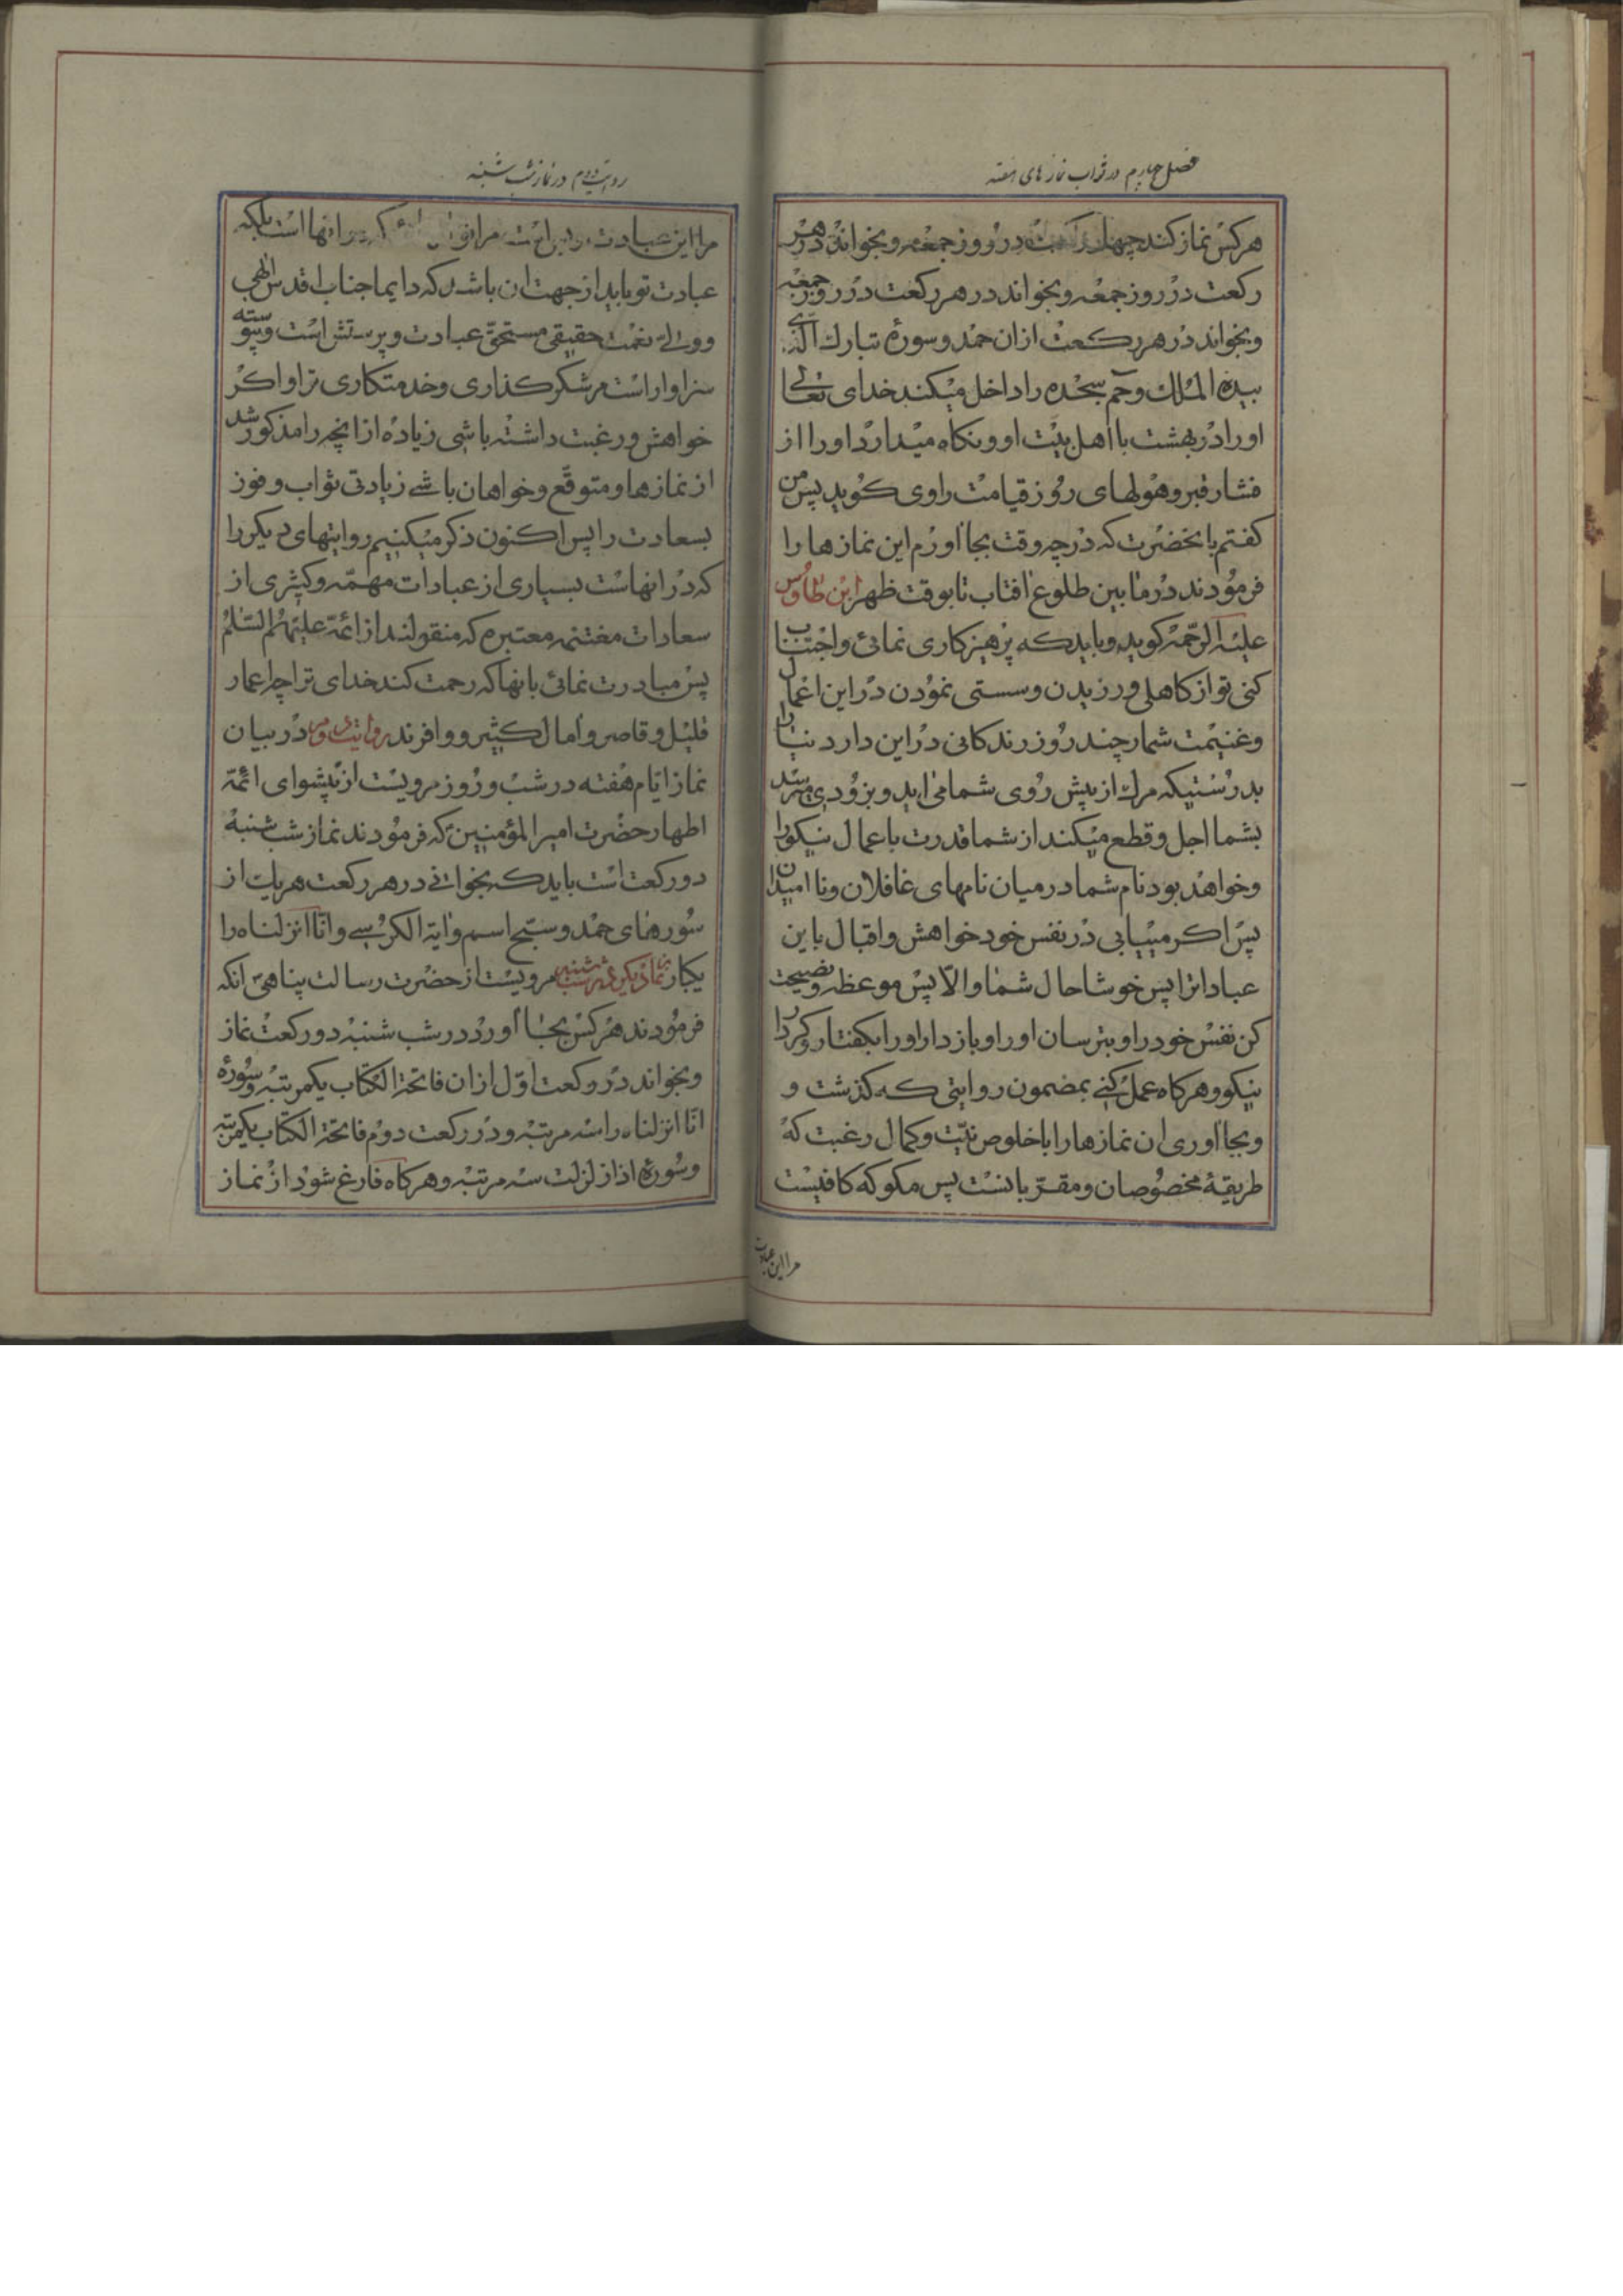 فصل چهارم در ثواب نمازهای هفته
هرکس نماز کند چهار رکعت در روز جمعه و بخواند در هر
رکعت در روز جمعه و بخواند در هر رکعت در روز جمعه
و بخواند در هر رکعت از ان حمد و سورهٔ تبارک الذی
بیده الملک و حم سجده را داخل میکند خدای تعالی
او را در بهشت با اهل بیت او و نکاه میدارد او را از
فشار قبر و هولهای روز قیامت راوی کوید پس من
کفتم بانحضرت که در چه وقت بجا اورم این نمازها را
فرمودند در مابین طلوع افتاب تا بوقت ظهر ابن طاوس
علیه الرحمه کوید و باید که پرهیزکاری نمائی و اجتناب
کنی تو از کاهلی ورزیدن و سستی نمودن در این اعمال
و غنیمت شمار چند روز زندکانی در این دار دنیا را
بدرستیکه مرک از پیش روی شما می اید و بزودی میرسد
بشما اجل و قطع میکند از شما قدرت باعمال نیکو را
و خواهد بود نام شما در میان نامهای غافلان و ناامیدان
پس اکر مییابی در نفس خود خواهش و اقبال باین
عبادات را پس خوشا حال شما و الا پس موعظه و نصیحت
کن نفس خود را و بترسان او را و بازدار او را بکفتار و کردار
نیکو و هرکاه عمل کنی بمضمون روایتی که کذشت و
و بجا اوری ان نمازها را با خلوص نیت و کمال رغبت که
طریقهٔ مخصوصان و مقربانست پس مکو که کافیست
مرا این عبادت
روایت دوم در نماز شب شنبه
مرا این عبادت مرا انها است بلکه
عبادت تو باید از جهت ان باشد که دایما جناب اقدس الهی
و ولی نعمت حقیقی مستحق عبادت و پرستش است و پیوسته
سزاوار است مر شکر کذاری و خدمتکاری ترا و اکر
خواهش و رغبت داشته باشی زیاده از انچه را مذکور شد
از نمازها و متوقع و خواهان باشی زیادتی ثواب و فوز
بسعادت را پس اکنون ذکر میکنیم روایتهای دیکر را
که در انهاست بسیاری از عبادات مهمه و کثیری از
سعادات مغتنمه معتبره که منقولند از ائمه علیهم السلام
پس مبادرت نمائی بانها که رحمت کند خدای ترا چه اعمار
قلیل و قاصر و امال کثیر و وافرند روایت دوم در بیان
نماز ایام هفته در شب و روز مرویست از پیشوای ائمه
اطهار حضرت امیر المؤمنین که فرمودند نماز شب شنبه
دو رکعت است باید که بخوانی در هر رکعت هر یک از
سورهای حمد و سبح اسم و ایة الکرسی و انا انزلناه را
یکبار نماز دیکر در شب شنبه مرویست از حضرت رسالت پناهی انکه
فرمودند هرکس بجا اورد در شب شنبه دو رکعت نماز
و بخواند در رکعت اول از ان فاتحة الکتاب یکمرتبه و سورهٔ
انا انزلناه را سه مرتبه و در رکعت دوم فاتحة الکتاب یکمرتبه
و سورهٔ اذا زلزلت سه مرتبه و هرکاه فارغ شود از نماز